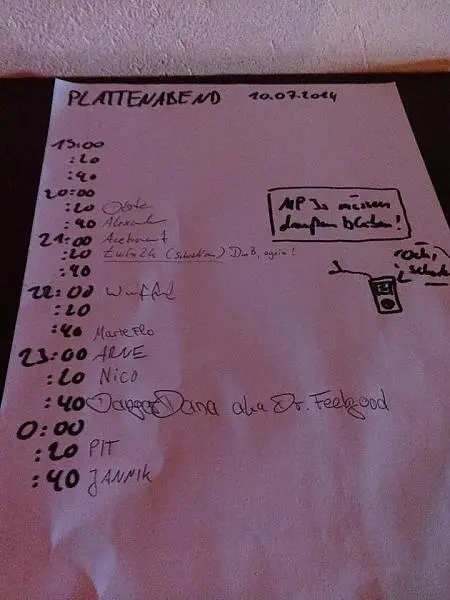 PLATTENABEND 10.07.2014
19:00
:20
:40
20:00
:20
:40 Alexander
21:00
:20 (Sebastian) DnB, again!
:40
22:00 Wuffel
:20
:40 MarieFlo
23:00 ARNE
:20 Nico
:40 DangerDana aka Dr. Feelgood
0:00
:20 PIT
:40 JANNIK
MP3s müssen
draußen bleiben!
Och,
schade